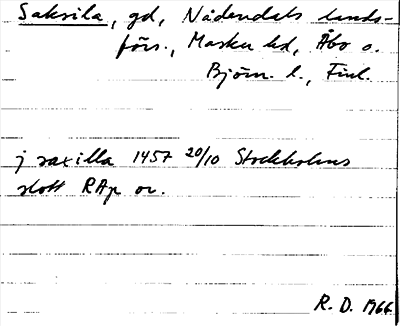 Saksila, gd, Nådendals lands-
förs., Masku hd, Åbo o.
Björn. l., Finl.
j saxilla 1457 20/10 Stockholms
slott RAp or.
R. D. 1966